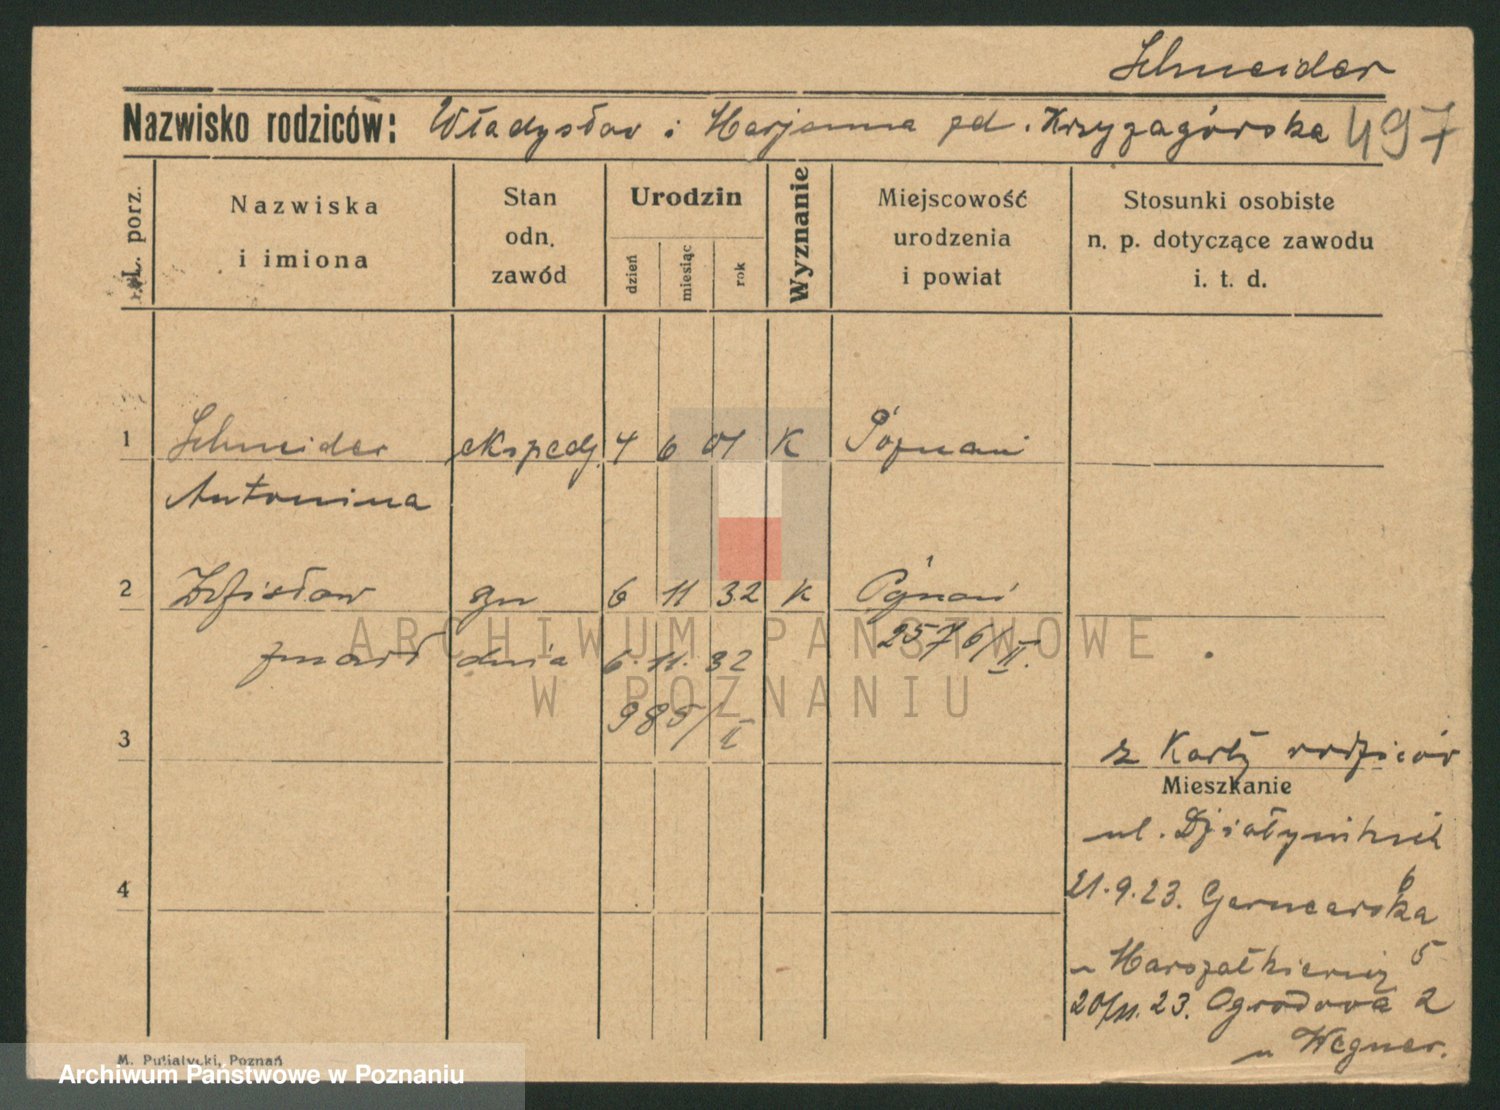 Schneider
Nazwisko rodziców: Władysław i Marjanna zd. Krzyżagórska 497
L. porz.
Nazwiska
i imiona
Stan
odn.
zawód
Urodzin
dzień
miesiąc
rok
Wyznanie
Miejscowość
urodzenia
i powiat
Stosunki osobiste
n. p. dotyczące zawodu
i. t. d.
1 Schneider ekspedj. 4 6 01 K Poznań
Antonina
2 Zdzisław syn 6 11 32 K Poznań
2576/II.
zmarł dnia 6.11.32
985/II
3
z Karty rodziców
Mieszkanie
ul. Działyńskich
6
21.9.23. Garncarska
4
u Marszałkiewicz 5
20/11.23. Ogrodowa 2
u Wegner.
M. Putiatycki, Poznań
ARCHIWUM PAŃSTWOWE
W POZNANIU
Archiwum Państwowe w Poznaniu